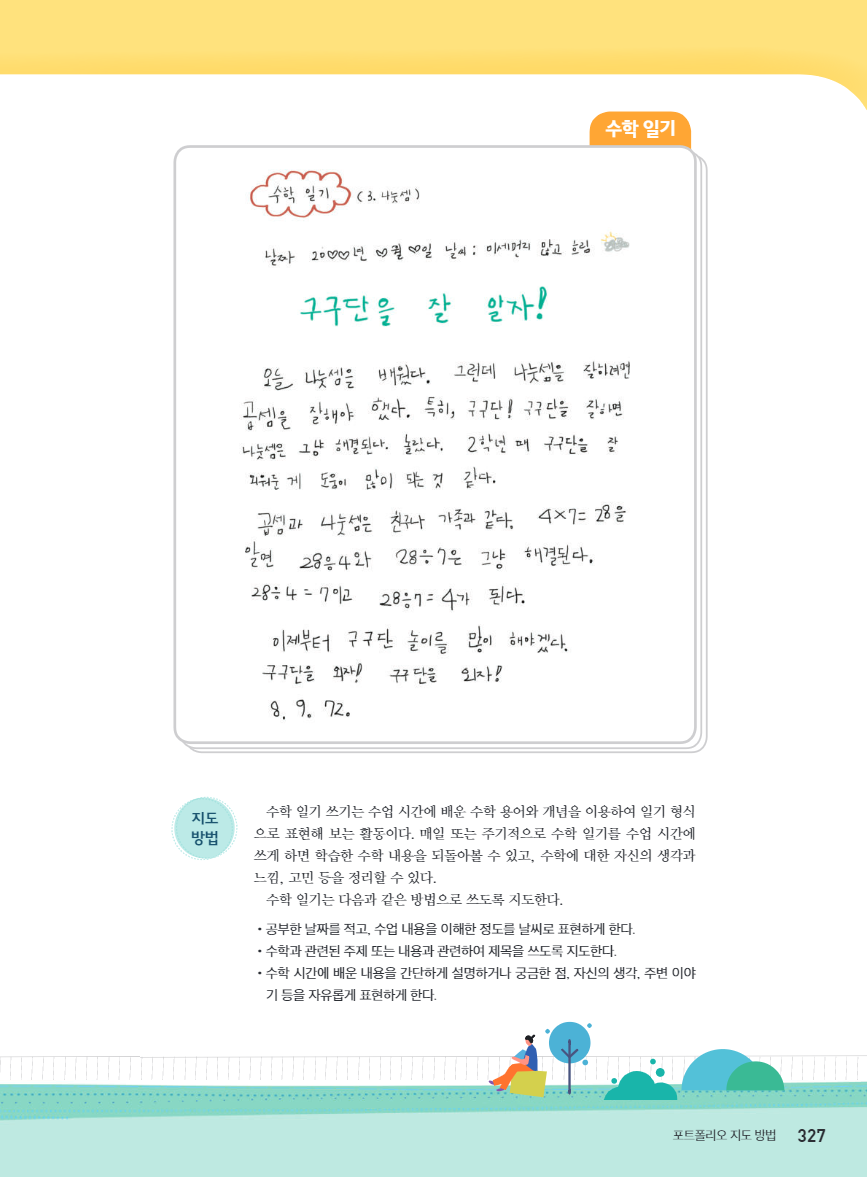 수학 일기
수학 일기 (3. 나눗셈)
날짜 20♡♡년 ♡월 ♡일 날씨: 미세먼지 많고 흐림
구구단을 잘 알자!
오늘 나눗셈을 배웠다. 그런데 나눗셈을 잘하려면
곱셈을 잘해야 했다. 특히, 구구단! 구구단을 잘하면
나눗셈은 그냥 해결된다. 놀랐다. 2학년 때 구구단을 잘
외워둔 게 도움이 많이 되는 것 같다.
곱셈과 나눗셈은 친구나 가족과 같다. 4×7=28을
알면 28÷4와 28÷7은 그냥 해결된다.
28÷4=7이고 28÷7=4가 된다.
이제부터 구구단 놀이를 많이 해야겠다.
구구단을 외자! 구구단을 외자!
8. 9. 72.
지도
방법
수학 일기 쓰기는 수업 시간에 배운 수학 용어와 개념을 이용하여 일기 형식
으로 표현해 보는 활동이다. 매일 또는 주기적으로 수학 일기를 수업 시간에
쓰게 하면 학습한 수학 내용을 되돌아볼 수 있고, 수학에 대한 자신의 생각과
느낌, 고민 등을 정리할 수 있다.
수학 일기는 다음과 같은 방법으로 쓰도록 지도한다.
• 공부한 날짜를 적고, 수업 내용을 이해한 정도를 날씨로 표현하게 한다.
• 수학과 관련된 주제 또는 내용과 관련하여 제목을 쓰도록 지도한다.
• 수학 시간에 배운 내용을 간단하게 설명하거나 궁금한 점, 자신의 생각, 주변 이야
기 등을 자유롭게 표현하게 한다.
포트폴리오 지도 방법 327